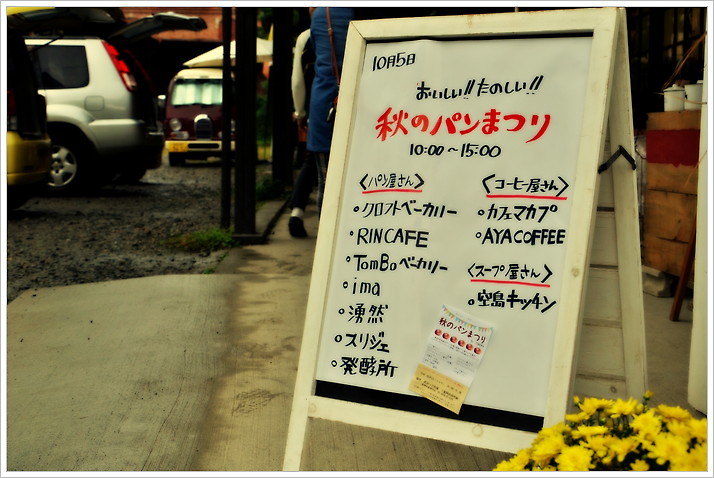 10月5日
おいしい!!たのしい!!
秋のパンまつり
10:00～15:00
<パン屋さん>
○クロフトベーカリー
○RINCAFE
○TomBoベーカリー
○ima
○湧然
○スリジェ
○発酵所
<コーヒー屋さん>
○カフェマカプ
○AYACOFFEE
<スープ屋さん>
○空島キッチン
秋のパンまつり